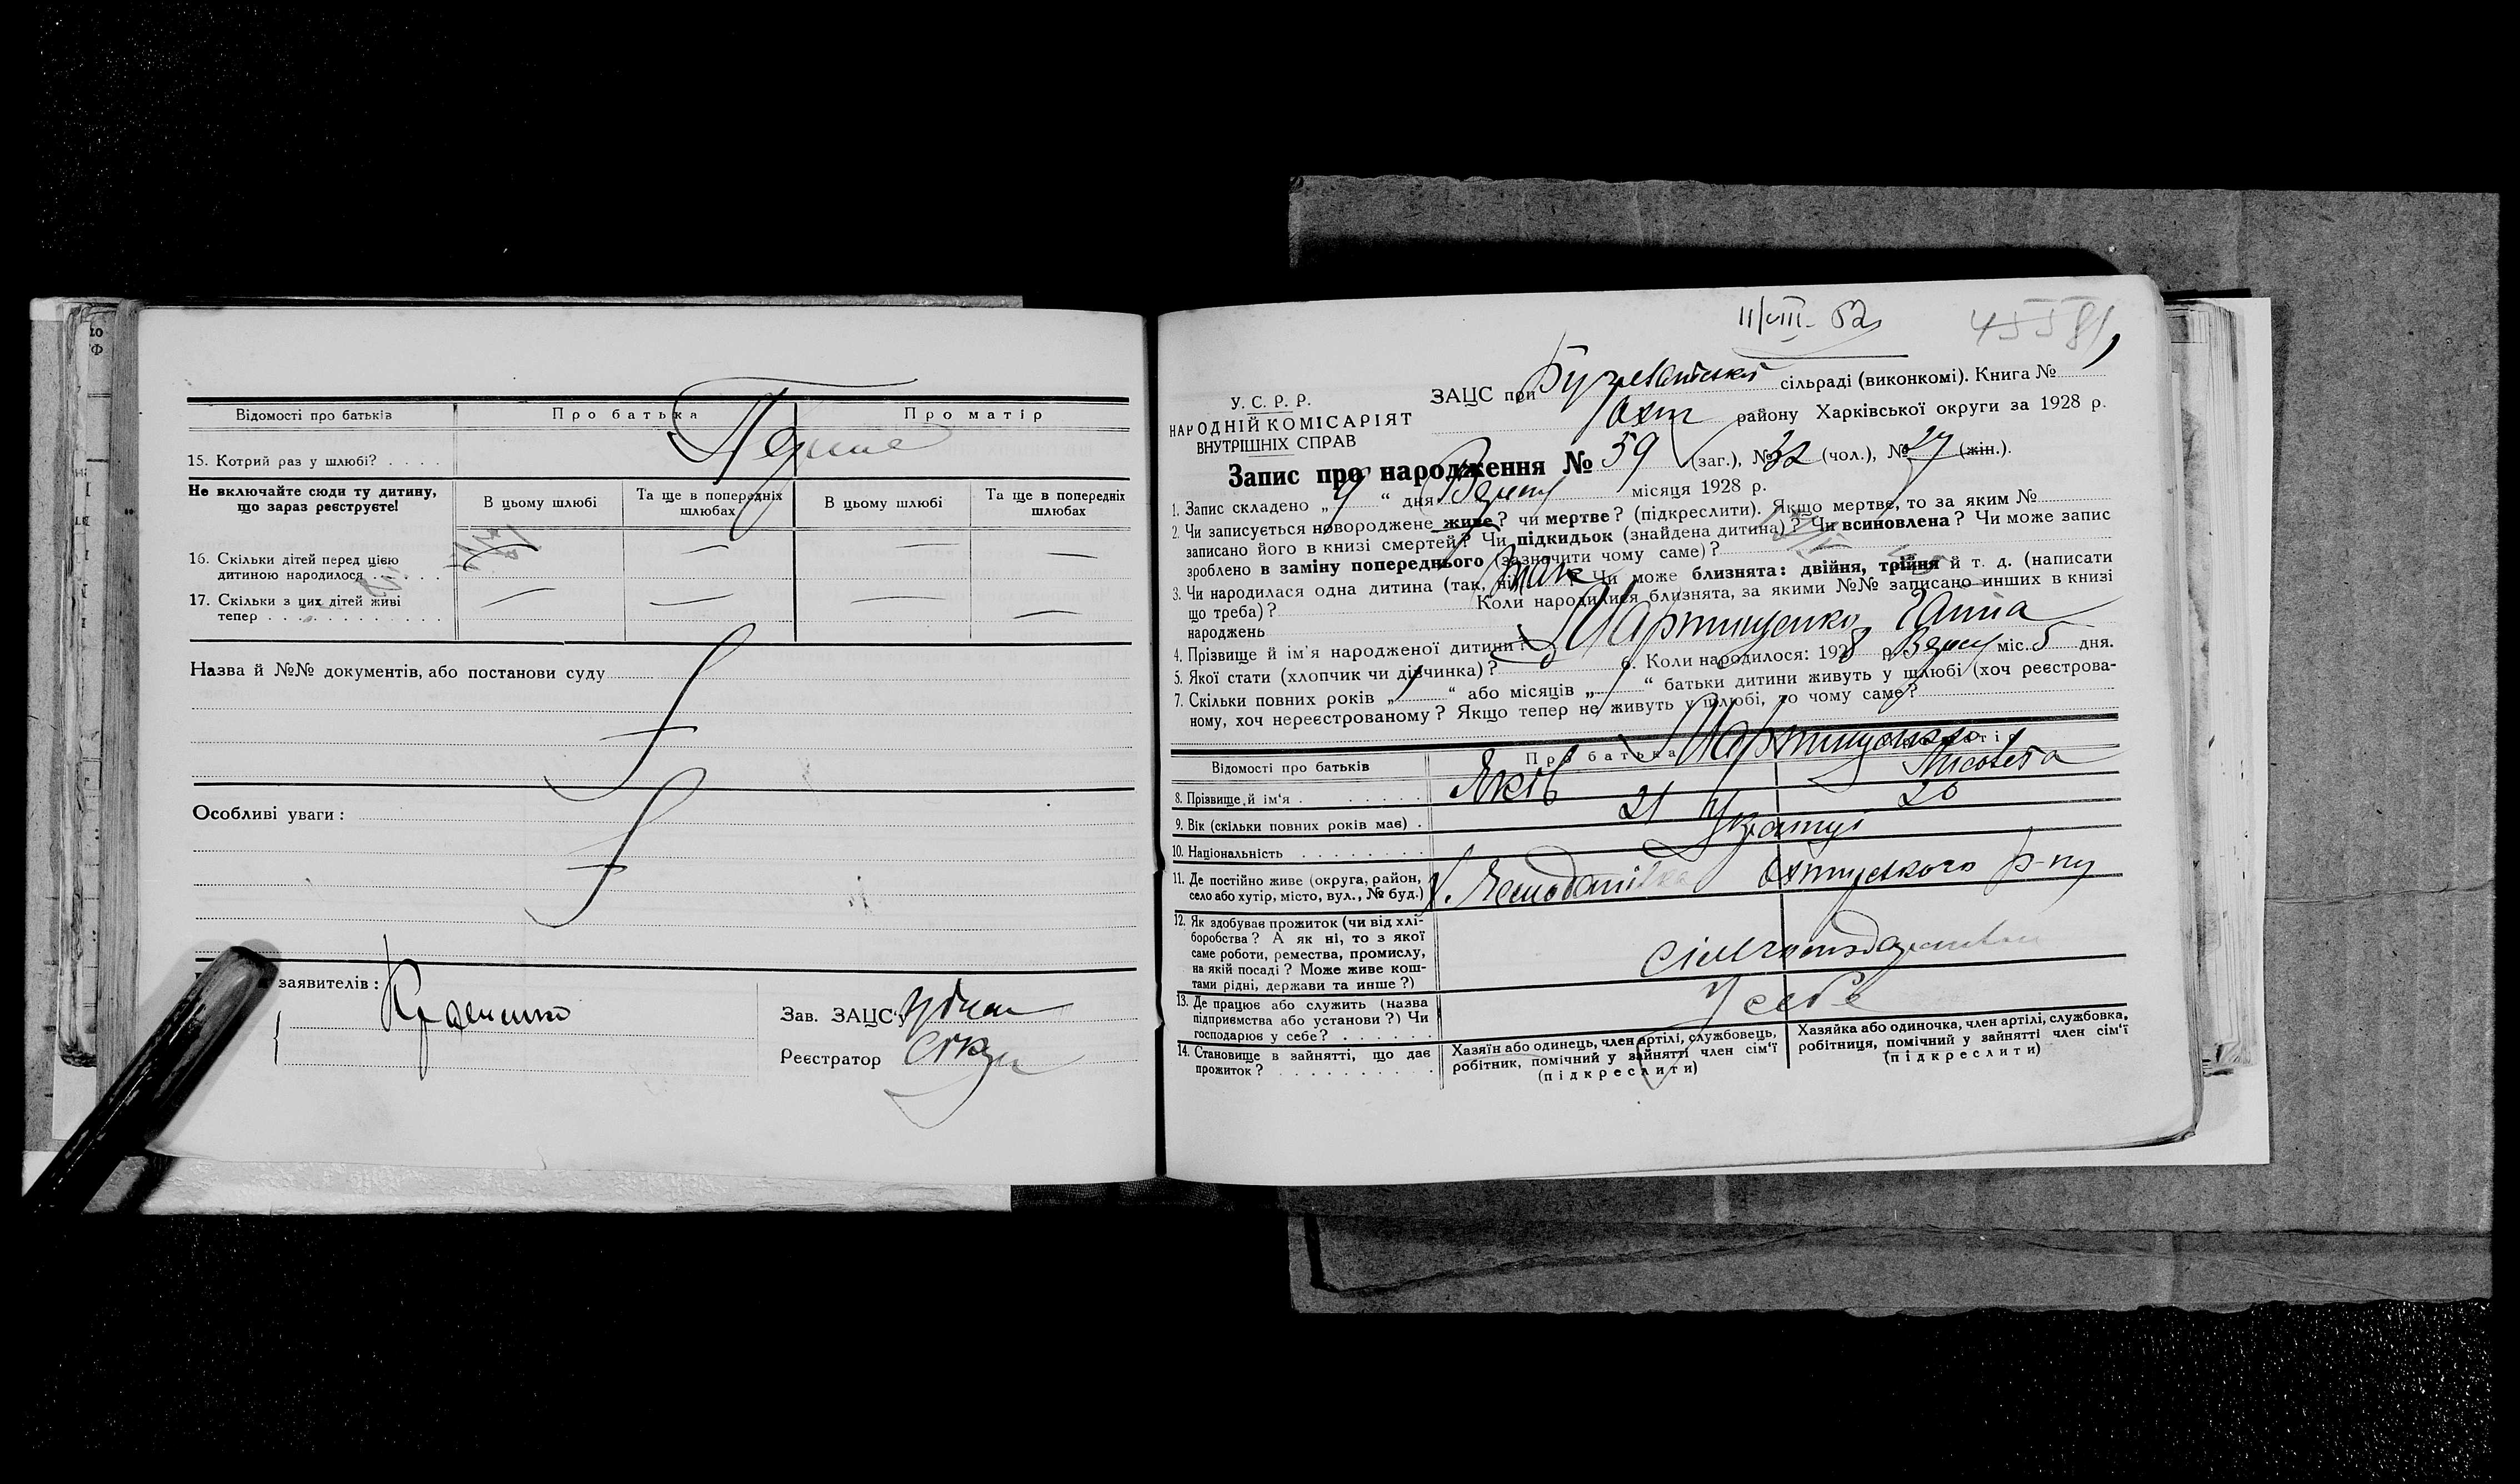 Відомості про батьків
Про батька
Про матір
15. Котрий раз у шлюбі? . . . .
Не включайте сюди ту дитину,
що зараз реєструєте!
В цьому шлюбі
Та ще в попередніх
шлюбах
В цьому шлюбі
Та ще в попередніх
шлюбах
16. Скільки дітей перед цією
дитиною народилося . . . . . .
17. Скільки з цих дітей живі
тепер . . . . . . . . . . . .
Назва й №№ документів, або постанови суду
Особливі уваги:
заявителів:
Зав. ЗАЦС'у
Реєстратор
11/VIII-
45581
У. С. Р. Р.
НАРОДНІЙ КОМІСАРІЯТ
ВНУТРІШНІХ СПРАВ
ЗАЦС при сільраді (виконкомі). Книга №
Охт району Харківської округи за 1928 р.
Запис про народження № 59 (заг.), № 32 (чол.), № 27 (жін.).
1. Запис складено „9“ дня Верес місяця 1928 р.
2. Чи записується новороджене живе? чи мертве? (підкреслити). Якщо мертве, то за яким №
записано його в книзі смертей? Чи підкидьок (знайдена дитина)? Чи всиновлена? Чи може запис
зроблено в заміну попереднього (зазначити чому саме)?
3. Чи народилася одна дитина (так, ні)? так Чи може близнята: двійня, трійня й т. д. (написати
що треба)? Коли народилися близнята, за якими №№ записано инших в книзі
народжень
4. Прізвище й ім'я народженої дитини? Мартиненко Ганна
5. Якої стати (хлопчик чи дівчинка)? 6. Коли народилося: 1928 р. Верес міс. 5 дня.
7. Скільки повних років „1“ або місяців „ “ батьки дитини живуть у шлюбі (хоч реєстрова-
ному, хоч нереєстрованому? Якщо тепер не живуть у шлюбі, то чому саме?
Відомості про батьків
Про батька
Про матір
8. Прізвище й ім'я . . . . . . .
Яків
9. Вік (скільки повних років має) .
21
20
10. Національність . . . . . . . .
11. Де постійно живе (округа, район,
село або хутір, місто, вул., № буд.)
Охтирського р-ну
12. Як здобуває прожиток (чи від хлі-
боробства? А як ні, то з якої
саме роботи, ремества, промислу,
на якій посаді? Може живе кош-
тами рідні, держави та инше?)
13. Де працює або служить (назва
підприємства або установи?) Чи
господарює у себе? . . . . . .
У себе
14. Становище в зайнятті, що дає
прожиток? . . . . . . . . . .
Хазяїн або одинець, член артілі, службовець,
робітник, помічний у зайнятті член сім'ї
(підкреслити)
Хазяйка або одиночка, член артілі, службовка,
робітниця, помічний у зайнятті член сім'ї
(підкреслити)